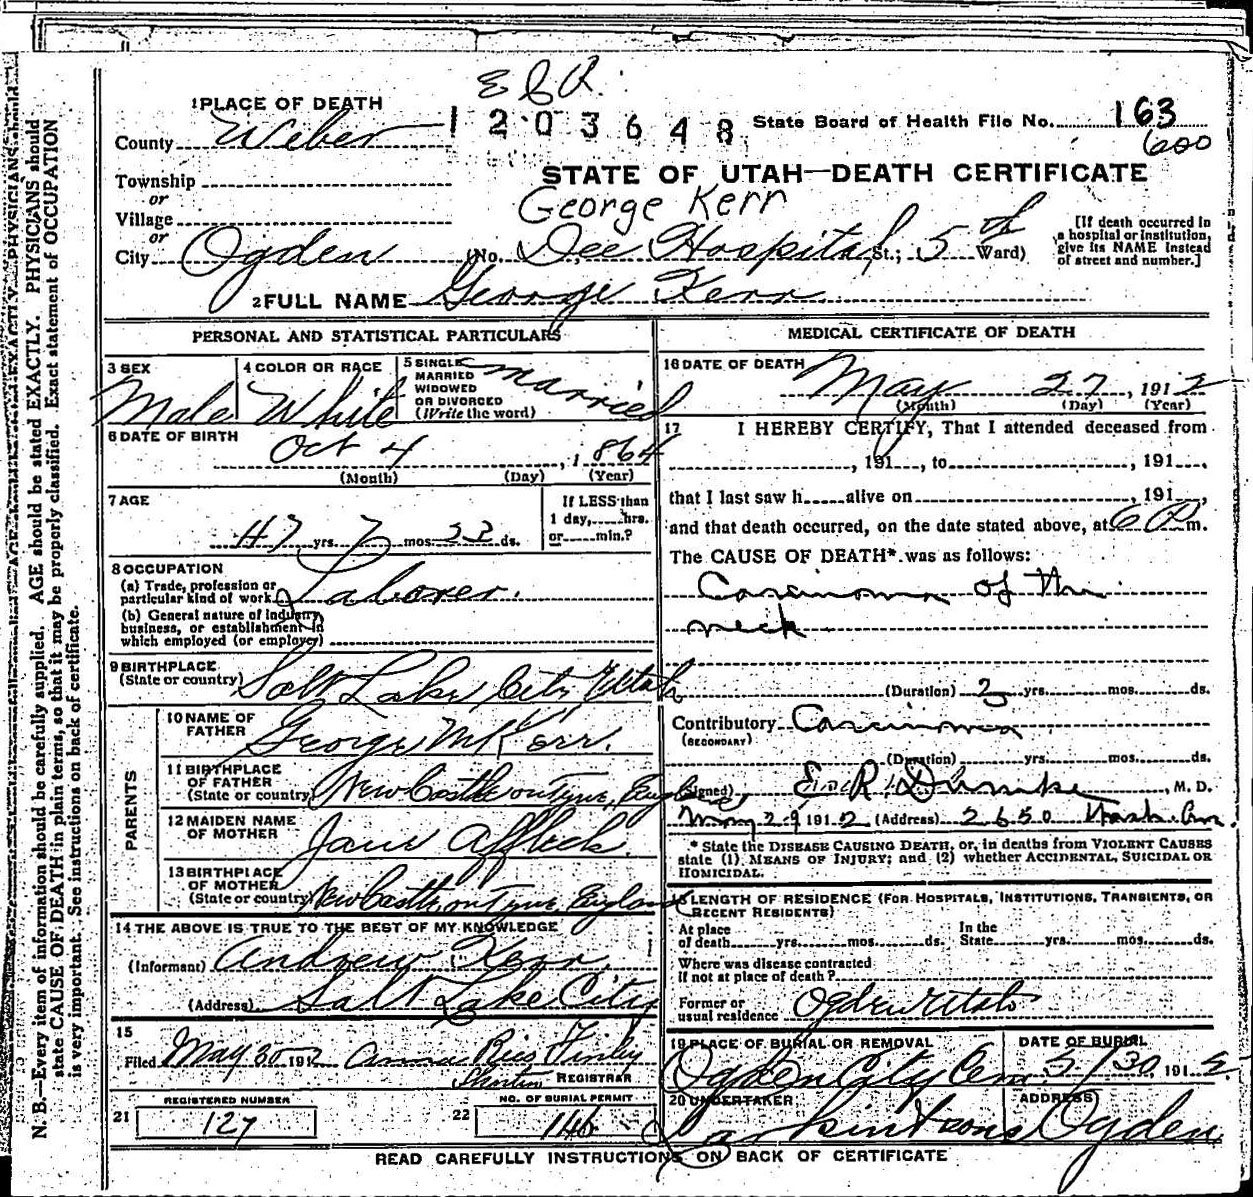 E S R.
1 PLACE OF DEATH
1203648
State Board of Health File No. 163
600
County Weber
STATE OF UTAH—DEATH CERTIFICATE
Township
George Kerr
or
Village
or
City Ogden (No. Dee Hospital St.; 5th Ward)
[If death occurred in
a hospital or institution,
give its NAME instead
of street and number.]
2 FULL NAME George Kerr
PERSONAL AND STATISTICAL PARTICULARS
3 SEX Male
4 COLOR OR RACE White
5 SINGLE
MARRIED
WIDOWED
OR DIVORCED
(Write the word)
married
6 DATE OF BIRTH
Oct 4, 1864
(Month) (Day) (Year)
7 AGE
47 yrs. 7 mos. 23 ds.
If LESS than
1 day, hrs.
or min.?
8 OCCUPATION
(a) Trade, profession or
particular kind of work Laborer.
(b) General nature of industry,
business, or establishment in
which employed (or employer)
9 BIRTHPLACE
(State or country) Salt Lake City Utah
PARENTS
10 NAME OF
FATHER George M Kerr.
11 BIRTHPLACE
OF FATHER
(State or country) New Castle on Tyne, England
12 MAIDEN NAME
OF MOTHER Jane Affleck.
13 BIRTHPLACE
OF MOTHER
(State or country) New Castle on Tyne, England
14 THE ABOVE IS TRUE TO THE BEST OF MY KNOWLEDGE
(Informant) Andrew Kerr
(Address) Salt Lake City
15
Filed May 30 1912 Anna Ries Finley
REGISTRAR
REGISTERED NUMBER
21 127
NO. OF BURIAL PERMIT
22 146
MEDICAL CERTIFICATE OF DEATH
16 DATE OF DEATH
May 27, 1912
(Month) (Day) (Year)
17 I HEREBY CERTIFY, That I attended deceased from
, 191 , to , 191 .
that I last saw h alive on , 191 ,
and that death occurred, on the date stated above, at 6 P m.
The CAUSE OF DEATH* was as follows:
Carcinoma of the
neck
(Duration) 3 yrs. mos. ds.
Contributory Carcinoma
(SECONDARY)
(Duration) yrs. mos. ds.
(Signed) E. R. Dumke, M. D.
May 29 1912 (Address) 2650 Wash. Av.
* State the DISEASE CAUSING DEATH, or, in deaths from VIOLENT CAUSES
state (1) MEANS OF INJURY; and (2) whether ACCIDENTAL, SUICIDAL OR
HOMICIDAL.
18 LENGTH OF RESIDENCE (FOR HOSPITALS, INSTITUTIONS, TRANSIENTS, OR
RECENT RESIDENTS)
At place
of death yrs. mos. ds.
In the
State yrs. mos. ds.
Where was disease contracted
if not at place of death?
Former or
usual residence Ogden Utah
19 PLACE OF BURIAL OR REMOVAL
Ogden City Cem.
DATE OF BURIAL
5/30 1912
20 UNDERTAKER
Larkin & Sons
ADDRESS
Ogden
READ CAREFULLY INSTRUCTIONS ON BACK OF CERTIFICATE
N. B.—Every item of information should be carefully supplied. AGE should be stated EXACTLY. PHYSICIANS should
state CAUSE OF DEATH in plain terms, so that it may be properly classified. Exact statement of OCCUPATION
is very important. See instructions on back of certificate.